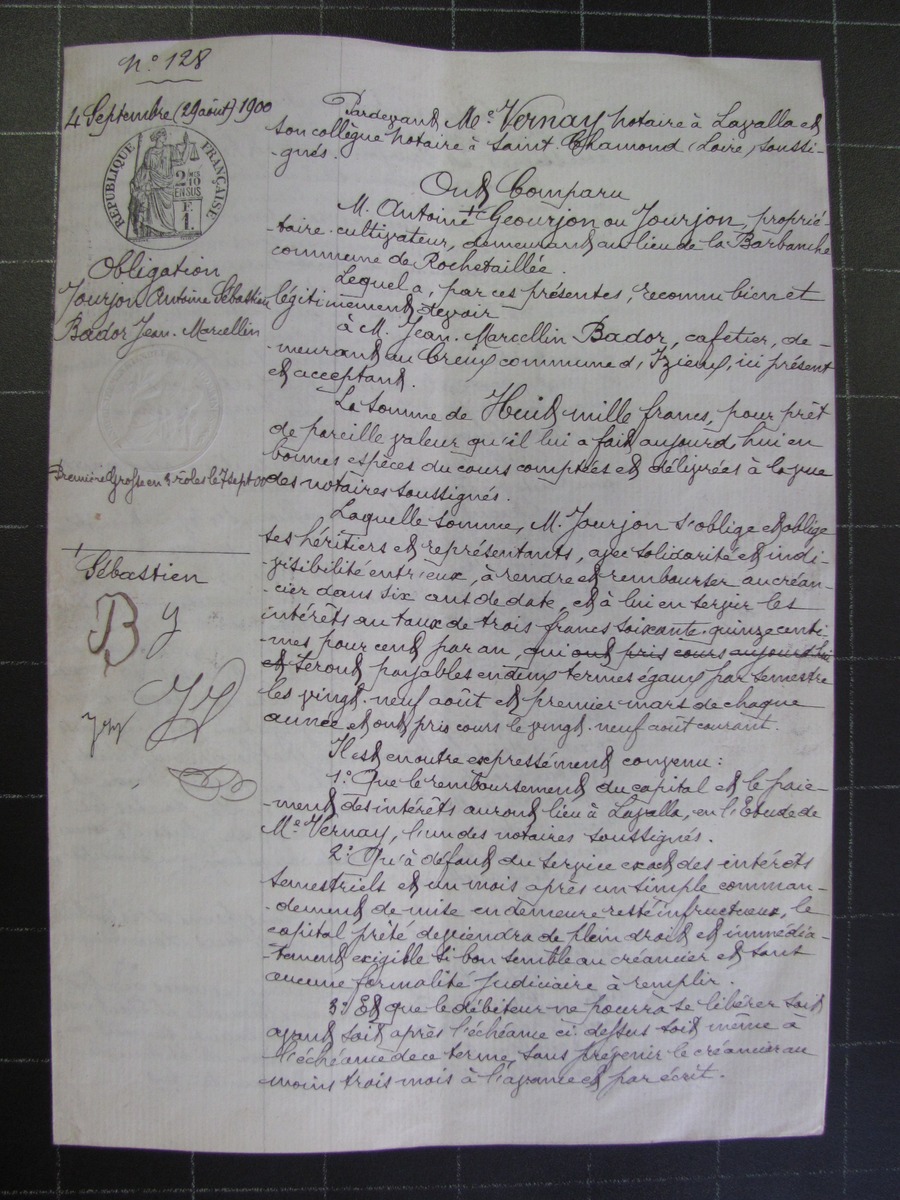 N° 128
4 Septembre (29 août) 1900
RÉPUBLIQUE FRANÇAISE
2/10
EN SUS
F
1.
Obligation
Jourjon Antoine Sébastien
Bador Jean-Marcellin
Première Grosse en rôles le 7 sept 00
Sébastien
B y
Pardevant Me Vernay notaire à Lavalla et
son collègue notaire à Saint Chamond (Loire) soussi-
-gnés.
Ont Comparu
M. Antoine + Geourjon ou Jourjon, proprié-
-taire-cultivateur, demeurant au lieu de la Barbanche
commune de Rochetaillée.
Lequel a, par ces présentes, reconnu bien et
légitimement devoir
à M. Jean-Marcellin Bador, cafetier, de-
-meurant au Creux commune d'Izieux, ici présent
et acceptant.
La somme de Huit mille francs, pour prêt
de pareille valeur qu'il lui a fait aujourd'hui en
bonnes espèces du cours comptées et délivrées à la vue
des notaires soussignés.
Laquelle somme, M. Jourjon s'oblige et oblige
ses héritiers et représentants, avec solidarité et indi-
-visibilité entr'eux, à rendre et rembourser au créan-
-cier dans six ans de date, et à lui en servir les
intérêts au taux de trois francs soixante-quinze centi-
-mes pour cent par an, qui ont pris cours aujourd'hui
et seront payables en deux termes égaux par semestre
les vingt-neuf août et premier mars de chaque
année et ont pris cours le vingt-neuf août courant.
Il est en outre expressément convenu :
1° Que le remboursement du capital et le paie-
-ment des intérêts auront lieu à Lavalla, en l'Etude de
Me Vernay, l'un des notaires soussignés.
2° Qu'à défaut du service exact des intérêts
semestriels et un mois après un simple comman-
-dement de mise en demeure resté infructueux, le
capital prêté deviendra de plein droit et immédia-
-tement exigible si bon semble au créancier et sans
aucune formalité judiciaire à remplir.
3° Et que le débiteur ne pourra se libérer soit
avant soit après l'échéance ci-dessus soit même à
l'échéance de ce terme, sans prévenir le créancier au
moins trois mois à l'avance et par écrit.